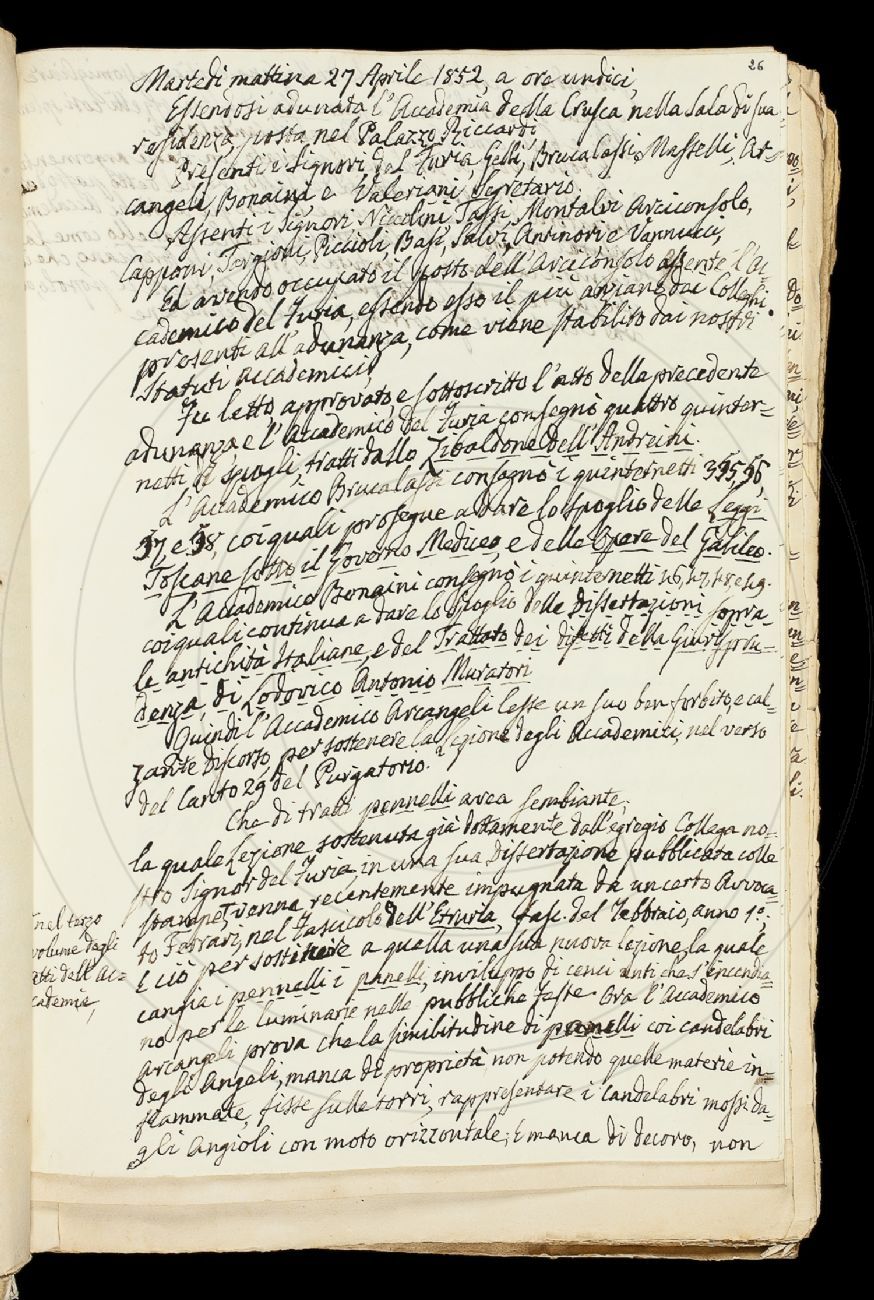 26
Martedì mattina 27 Aprile 1852, a ore undici,
Essendosi adunata l'Accademia della Crusca, nella Sala di sua
residenza, posta nel Palazzo Riccardi;
Presenti i Signori del Furia, Gelli, Brucalassi, Masselli, Ar=
cangeli, Bonaini, e Valeriani, Segretario.
Assenti i Signori Niccolini, Tassi, Montalvi Arciconsolo,
Capponi, Targioni, Piccioli, Basi, Salvi, Antinori e Vannucci,
Ed avendo occupato il posto dell'Arciconsolo assente l'Ac=
cademico del Furia, essendo esso il più anziano dai Colleghi
presenti all'adunanza, come viene stabilito dai nostri
Statuti accademici,
Fu letto, approvato, e sottoscritto l'atto della precedente
adunanza e l'Accademico del Furia consegnò quattro quinter=
netti di spogli, tratti dallo Zibaldone dell'Andreini.
L'Accademico Brucalassi consegnò i quinternetti 56,
57 e 58, coi quali prosegue a dare lo spoglio delle Leggi
Toscane sotto il Governo Mediceo, e delle Opere del Galileo.
L'Accademico Bonaini consegnò i quinternetti 46, 47, 48, e 49.
coi quali continua a dare lo spoglio delle Dissertazioni sopra
le antichità Italiane, e del Trattato dei difetti della Giurispru=
denza, di Lodovico Antonio Muratori
Quindi l'Accademico Arcangeli lesse un suo ben forbito, e cal=
zante discorso, per sostenere la lezione degli Accademici, nel verso
del Canto 29 del Purgatorio.
Che di tratti pennelli avea sembiante,
la quale Lezione sostenuta già dottamente dall'egregio Collega no=
stro Signor del Furia, in una sua dissertazione pubblicata colle
stampe, venna recentemente impugnata da un certo Avvoca=
to Ferrari, nel Fascicolo dell'Etruria, (fasc. del Febbraio, anno 1°.
E ciò per sostituire a quella una sua nuova lezione, la quale
cangia i pennelli i panelli, inviluppo di cenci unti che s'incendia=
no per le luminarie nelle pubbliche feste. Ora l'Accademico
Arcangeli prova che la similitudine di panelli coi candelabri
degli Angeli, manca di proprietà non potendo quelle materie in=
fiammate, fisse sulle torri, rappresentare i candelabri mossi da=
gli Angioli con moto orizzontale; E manca di decoro, non
nel terzo
volume degli
atti dell'Ac=
cademia,